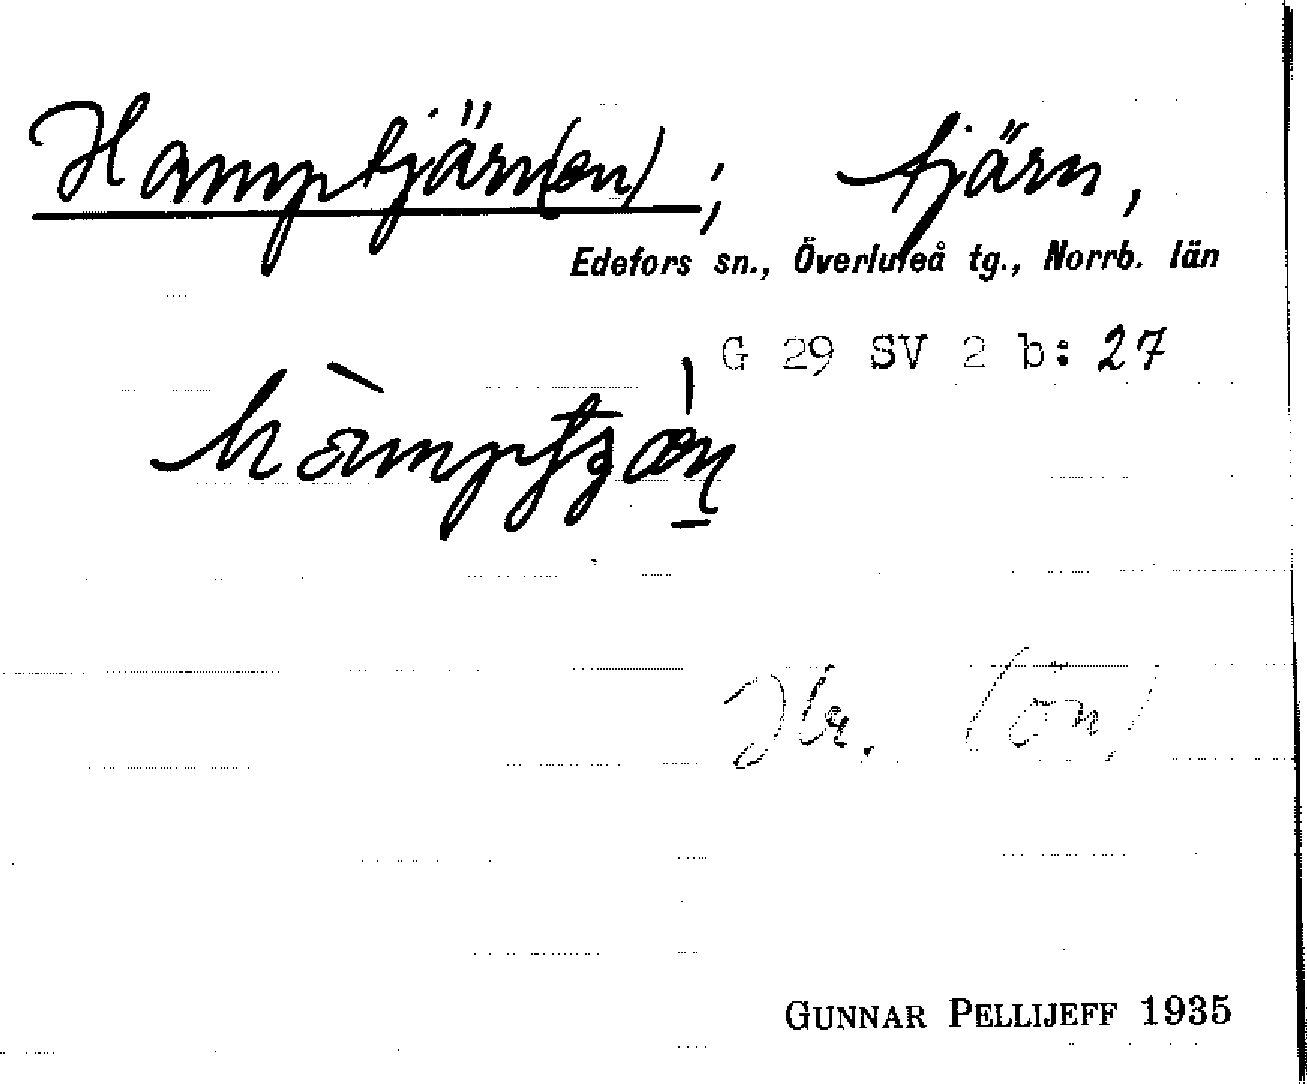 Hamptjärn(en); tjärn,
Edefors sn., Överluleå tg., Norrb. län
G 29 SV 2 b: 27
(ön)
GUNNAR PELLIJEFF 1935